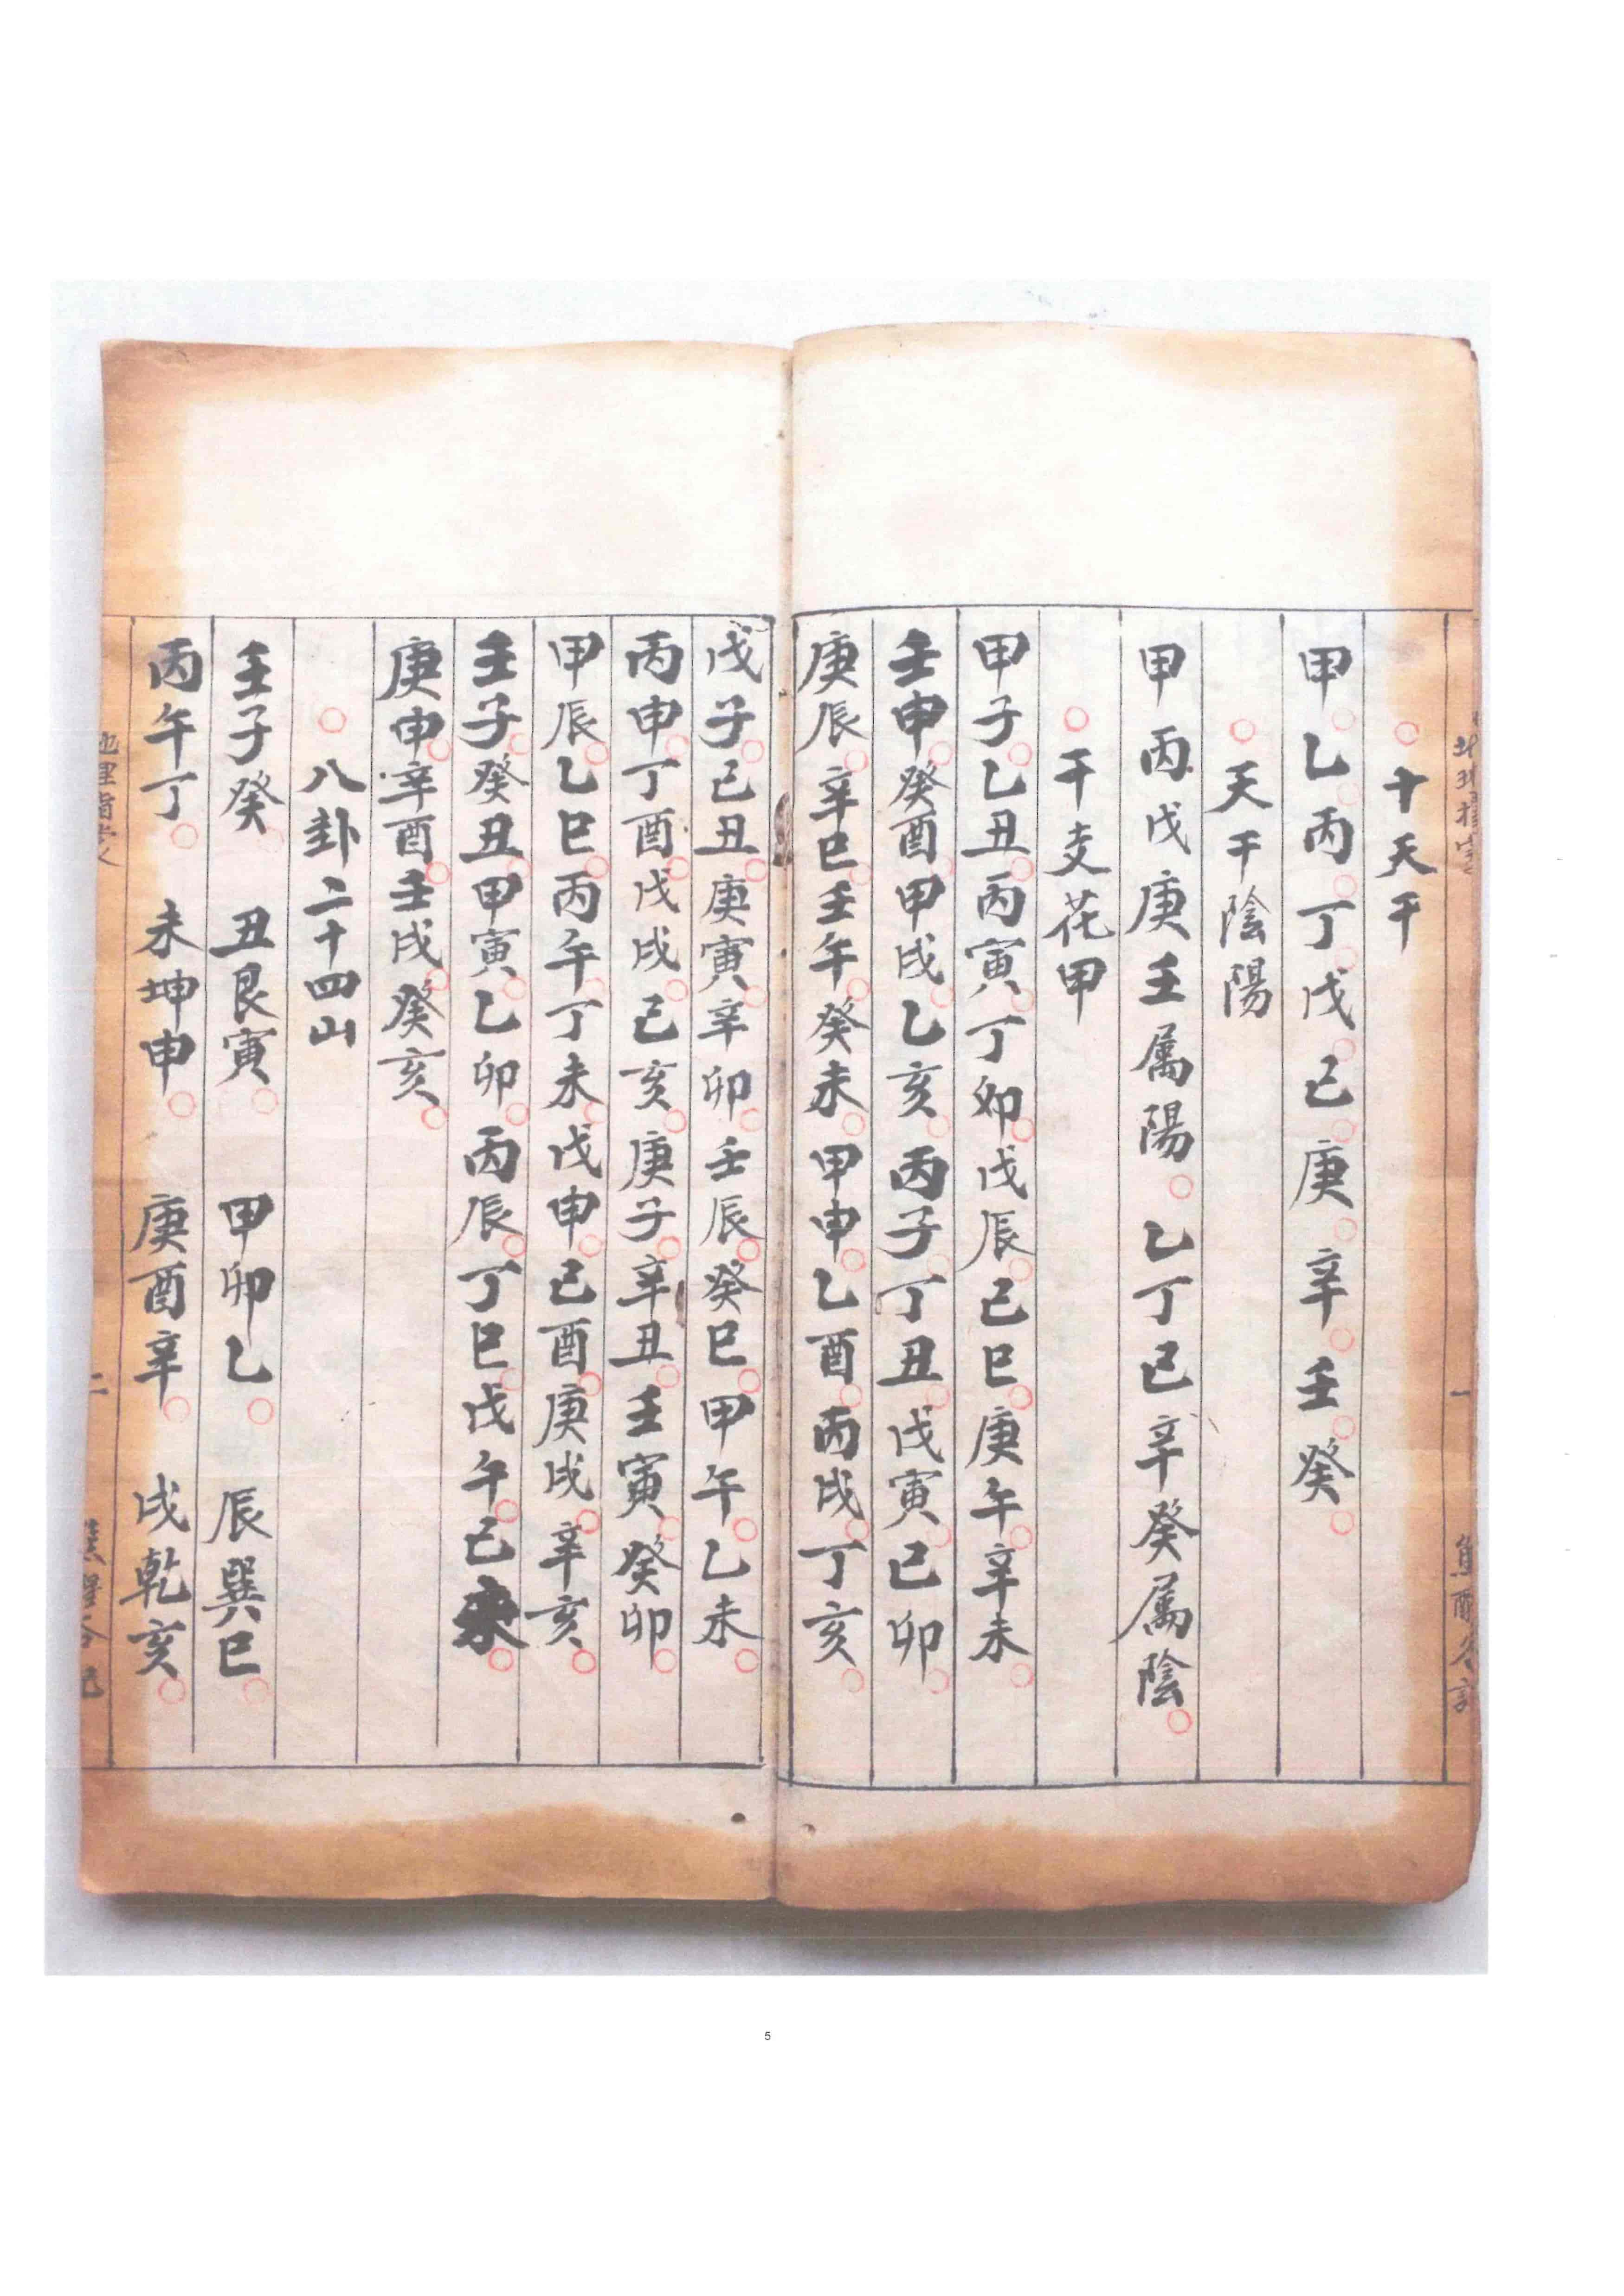 ○十天干
甲乙○丙○丁○戊○己○庚○辛○壬○癸○
○天干陰陽
甲丙戊庚壬属陽○乙丁己辛癸属陰○
○干支花甲
甲子○乙丑○丙寅○丁卯○戊辰○己巳○庚午○辛未○
壬申○癸酉○甲戌○乙亥○丙子○丁丑○戊寅○己卯○
庚辰○辛巳○壬午○癸未○甲申○乙酉○丙戌○丁亥○
戊子○己丑○庚寅○辛卯○壬辰○癸巳○甲午○乙未○
丙申○丁酉○戊戌○己亥○庚子○辛丑○壬寅○癸卯○
甲辰○乙巳○丙午○丁未○戊申○己酉○庚戌○辛亥○
壬子○癸丑○甲寅○乙卯○丙辰○丁巳○戊午○己未○
庚申○辛酉○壬戌○癸亥○
○八卦二十四山
壬子癸○丑艮寅○甲卯乙○辰巽巳○
丙午丁○未坤申○庚酉辛○戌乾亥○
二
5